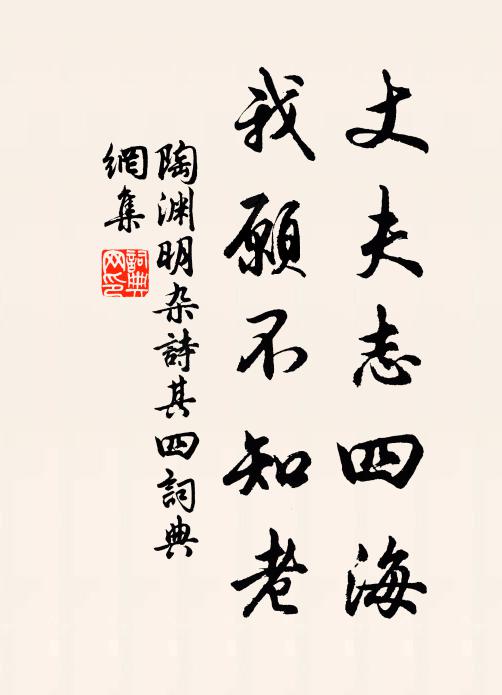 丈夫志四海
我願不知老
陶渊明杂詩其四詞典
網集
詞典
网印